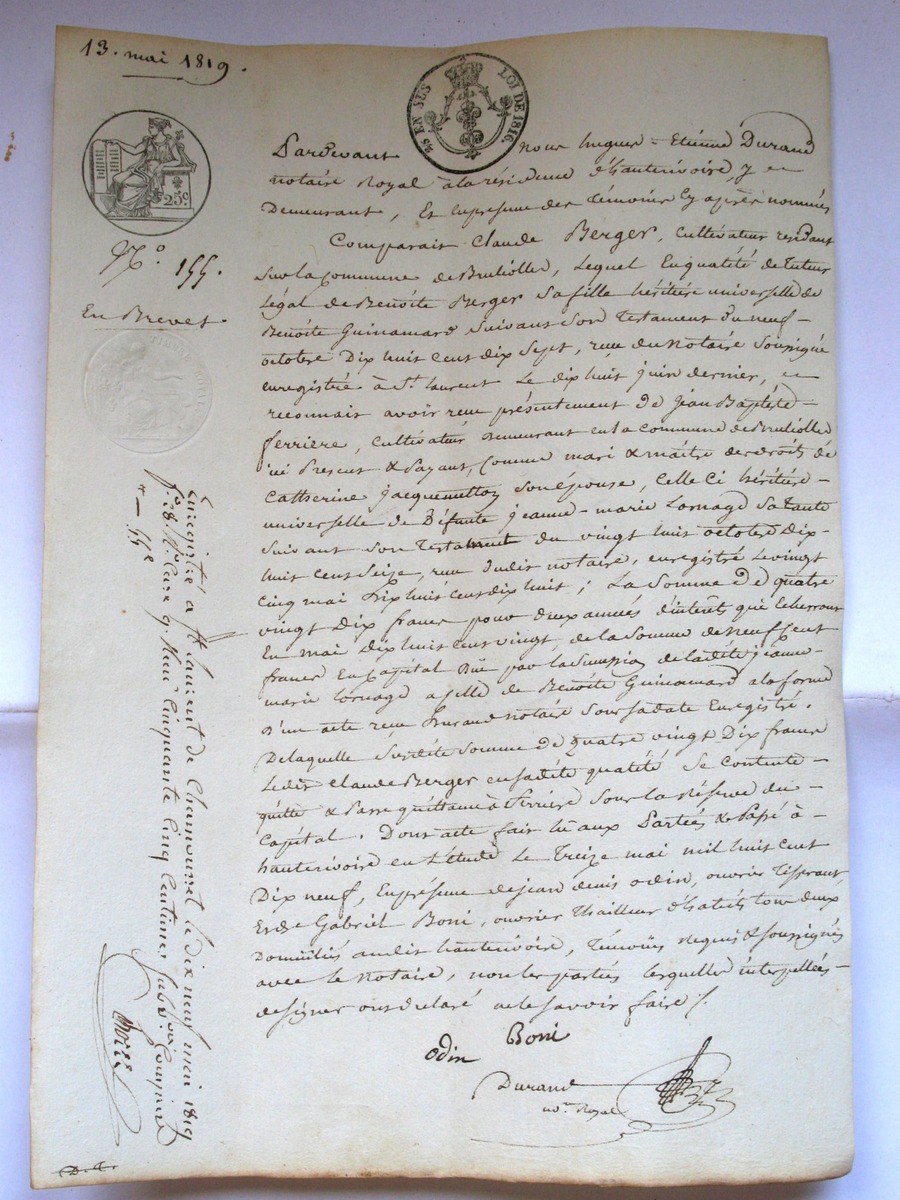 13. mai 1819.
25 EN SUS
LOI DE 1816.
25c
N.o 155.
En Brevet
Pardevant nous hugues = Etienne Durand
notaire Royal à la résidence d'hauterivoire, y en
Demeurant, Et en présence des témoins Cy après nommés
Comparait Claude Berger, Cultivateur résidant
Sur la Commune de Brullioles, Lequel En qualité de tuteur
Légal de Benoite Berger Sa fille héritière universelle de
Benoite Guinamard Suivant Son Testament du neuf =
octobre Dix huit cent dix Sept, reçu du Notaire Soussigné
enregistré à St. laurent Le dix huit juin dernier,
reconnait avoir reçu présentement de jean Baptiste =
ferriere, Cultivateur Demeurant en la commune de Brullioles
ici Present & Payant, Comme mari & maitre des droits de
Catherine jacquemetton Son épouse, Celle ci héritière =
universelle de Défunte jeanne = marie Lornage Sa Tante
Suivant Son Testament du vingt huit octobre Dix =
huit Cent Seize, reçu dudit notaire, enregistré Le vingt
Cinq mai Dix huit Cent dix huit ; La Somme de quatre
vingt Dix francs pour deux années d'intérets qui Echerront
En mai Dix huit Cent vingt, de la Somme de Neuf Cent
francs En Capital Dûe par la Succession de ladite jeanne =
marie Lornage a celle de Benoite Guinamard a la forme
D'un acte reçu Durand notaire Sous Sa date Enregistré.
De laquelle Susdite Somme de Quatre vingt Dix francs
Ledit Claude Berger en sadite qualité Se Contente =
quitte & Passe quittance à ferriere Sous la Réserve du
Capital. Dont acte fait lû aux Parties & Passé à =
hauterivoire en L'étude Le Treize mai mil huit cent
Dix neuf, En présence de jean denis odin, ouvrier Tisserant,
Et de Gabriel Boni, ouvrier thailleur d'habits tous deux
Domiciliés audit hauterivoire, Témoins requis & soussignés
avec le Notaire, non les parties lesquelles interpellées =
de signer ont déclaré ne le savoir faire /.
odin Boni
Durand
no.re Royal
Enregistré a St laurent de Chamousset le dix neuf mai 1819
f.o 28 R.o Case 9 Reçu Cinquante Cinq Centimes Subv.on Comprise
" — 55c